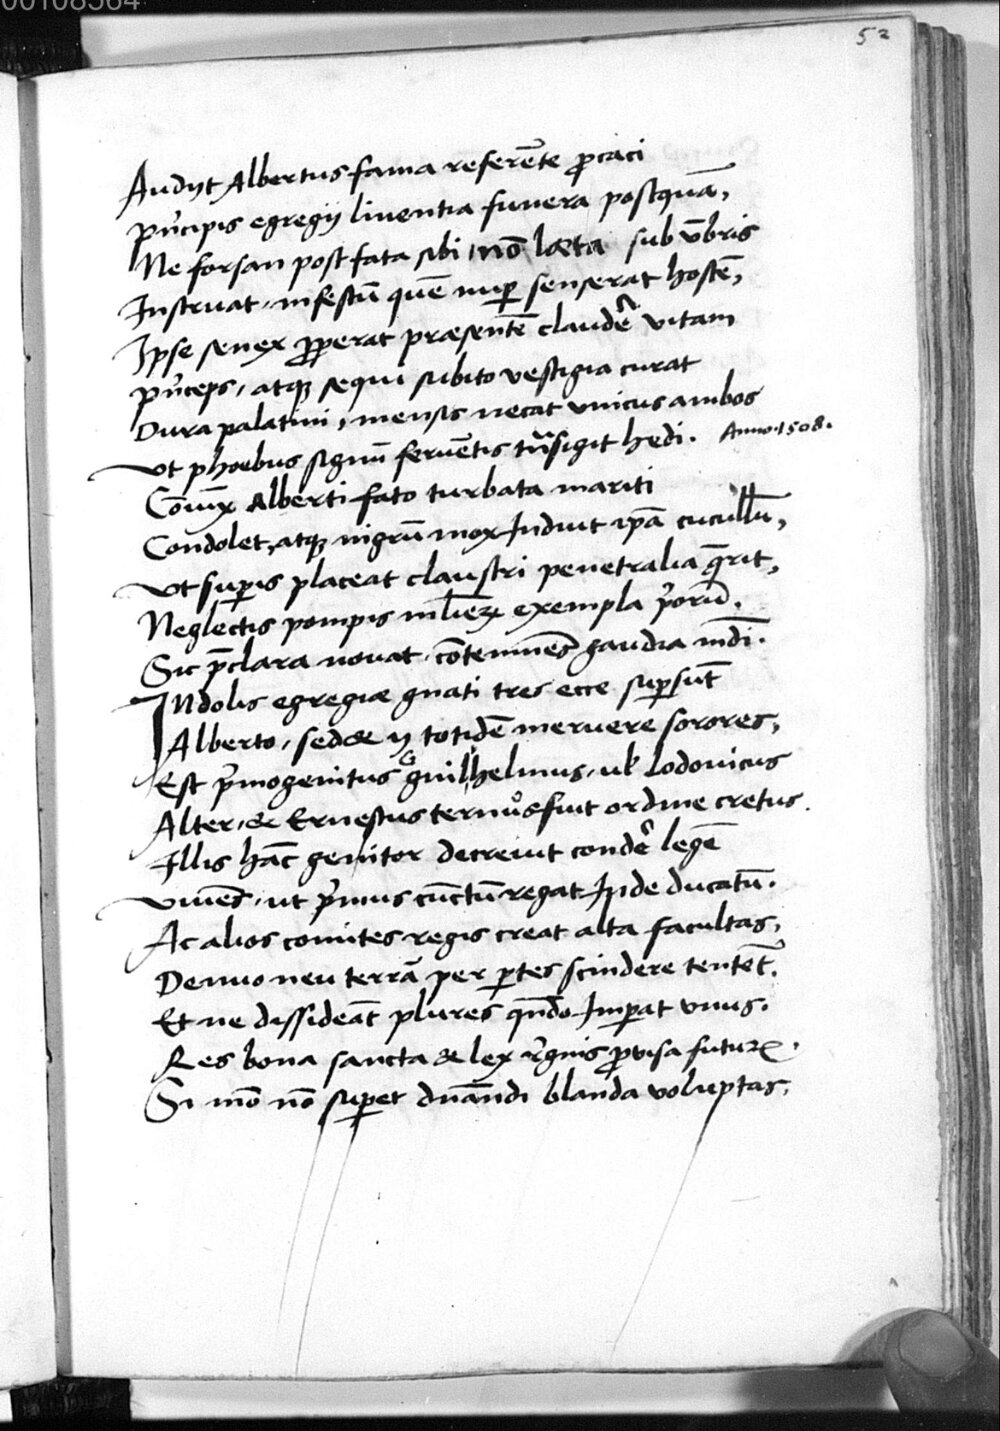 00108564
52
Audijt Albertus fama referēte p̱caci
Pr̃cipis egregij liuentia funera postquā,
Ne forsan post fata sibi nō læta sub vm̄bris
Instruat, infestū quē nup̱ senserat hostē,
Ipse senex p̱perat præsentē claudẽ vitam
Pr̃ceps, atqꝫ sequi subito vestigia curat
Dura palatini, mensis necat vnicus ambos
Vt phoebus signū feruētis trãsigit hędi. Anno. 1508.
Coīux Alberti fato turbata mariti
Condolet, atqꝫ nigrū mox Induit ip̄a cucullū,
Vt sup̱is placeat claustri penetralia q̄rit,
Neglectis pompis mulieꝝ exempla p̃orū.
Sic p̄clara nouat, cōtemnēs gaudia mūdi.
INdolis egregiæ gnati tres ecce sup̱sūt
Alberto, sed & ij totidē meruere sorores,
Est p̃mogenitus guilhelmus, uł Lodouicus
Alter, & Ernestus ternus fuit ordine cretus.
Illis hāc genitor decreuit condẽ legē
Viuēs, ut p̃mus cūctū regat Inde ducatū.
Ac alios comites regis creat alta facultas,
Denuo neu terrā per p̱tes scindere tentēt.
Et ne dissideāt plures qn̄do Imp̱at vnus.
Res bona sancta & lex r̃gnis p̱uisa futuꝝ.
Si mō nō sup̱et dn̄andi blanda voluptas,